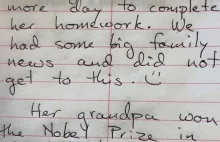 more day to complete
her homework. We
had some big family
news and did not
get to this. :)
Her grandpa won
the Nobel Prize in